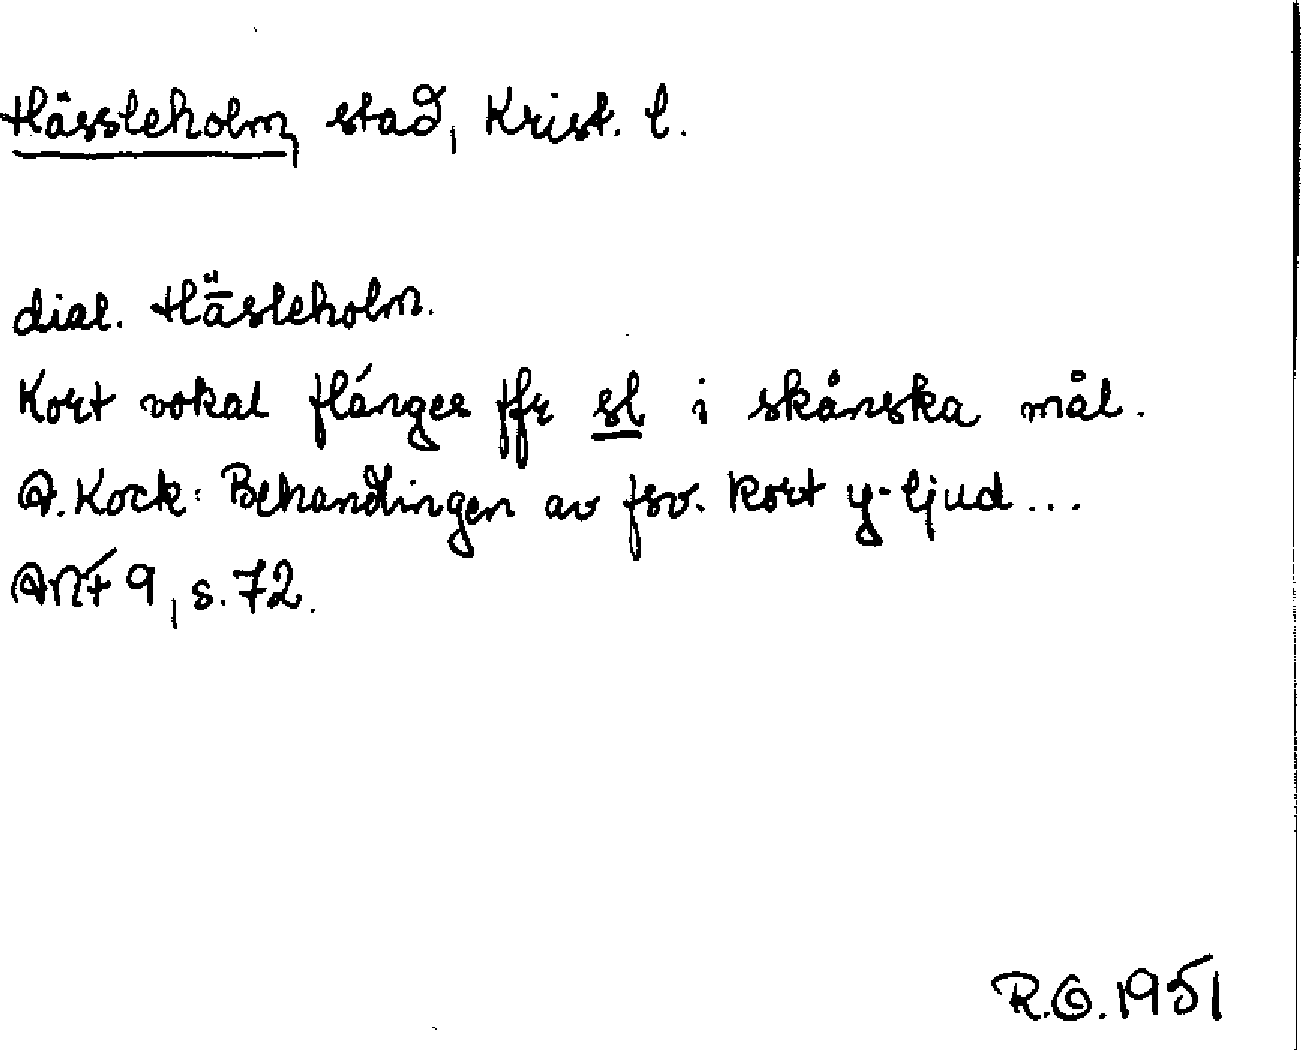 Hässleholm, stad, Krist. l.
dial. Hǟsleholm.
Kort vokal flánger ffr sl i skånska mål.
A. Kock: Behandlingen av fsv. kort y-ljud...
ANF 9, s. 72.
R.G. 1951